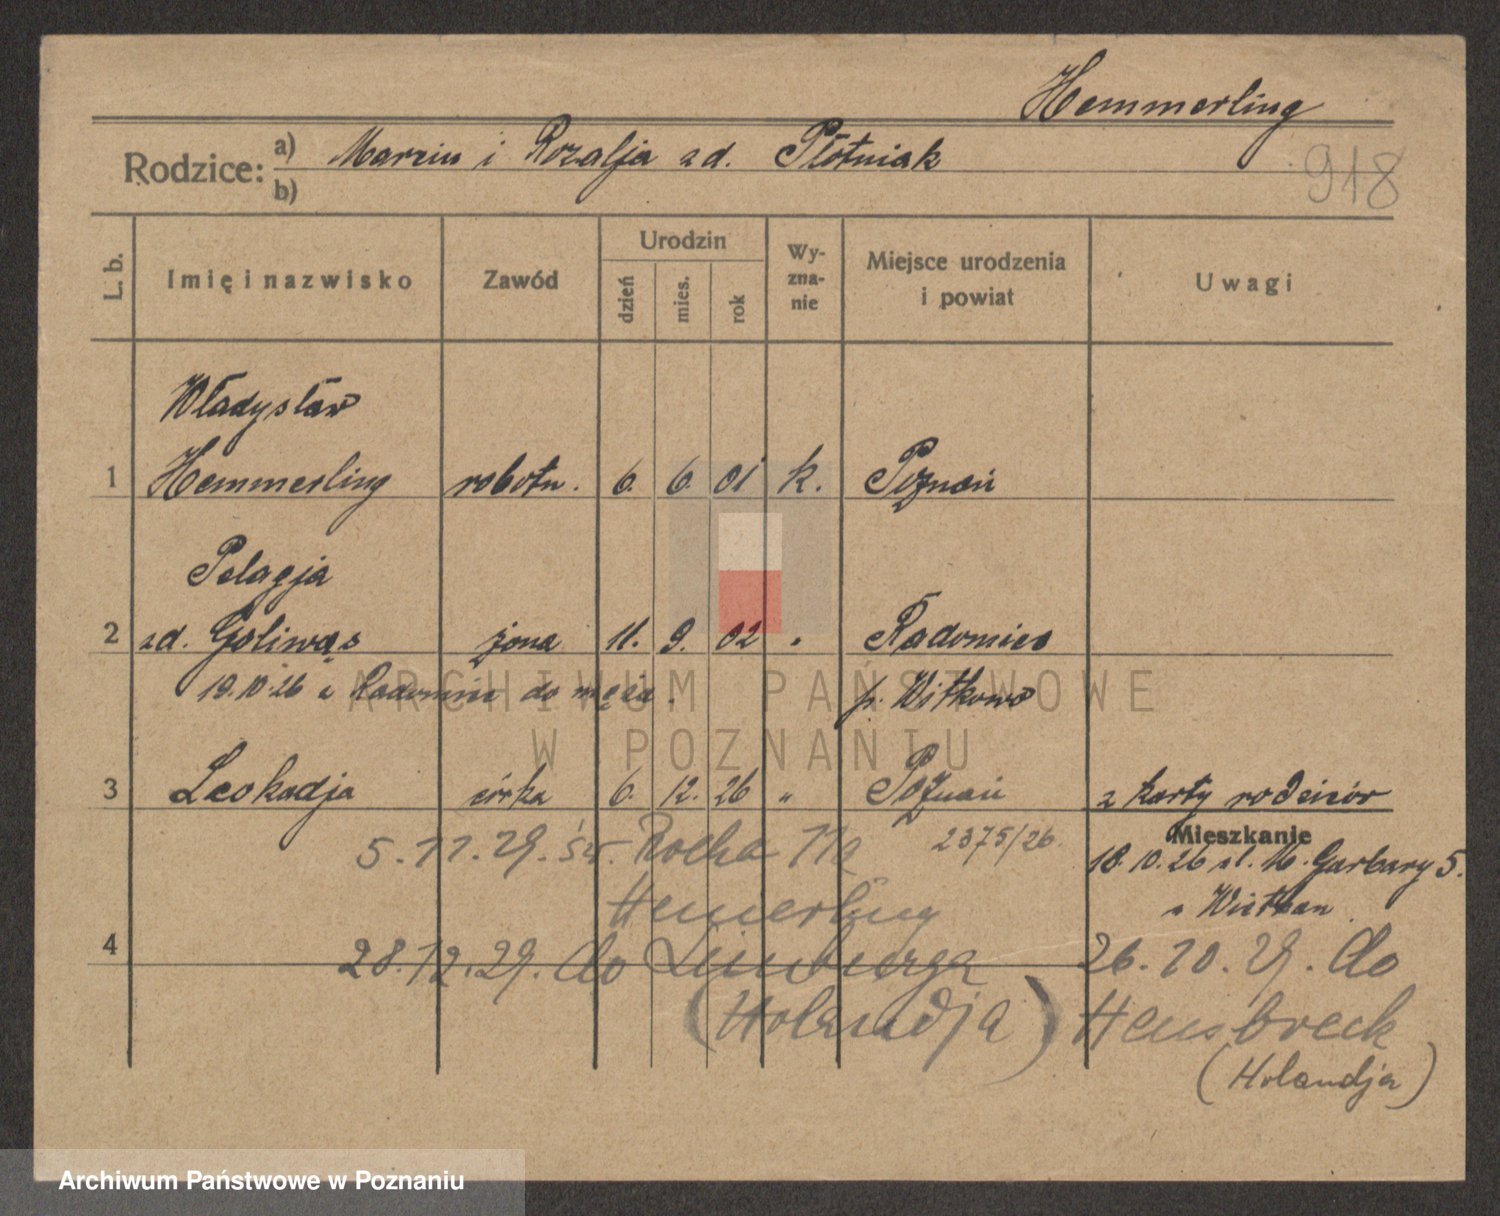 Hemmerling
Rodzice: a) Marcin i Rozalja zd. Płótniak
b)
918
L. b. Imię i nazwisko Zawód Urodzin dzień mies. rok Wyznanie Miejsce urodzenia i powiat Uwagi
Władysław
1 Hemmerling robotn. 6. 6. 01 k. Poznań
Pelagja
2 zd. Goliwąs żona 11. 9. 02 " Radomice
19.10.26 z Radomic do męża. p. Witkowo
3 Leokadja córka 6. 12. 26 " Poznań z karty rodziców
5.11.29. św. Rocha 11a 2375/26. Mieszkanie
18.10.26 ul. W. Garbary 5.
Hemerling
4 28.12.29. do Limburga 26.10.29. do
(Holandja) Hensbreck
(Holandja)
ARCHIWUM PAŃSTWOWE
W POZNANIU
Archiwum Państwowe w Poznaniu